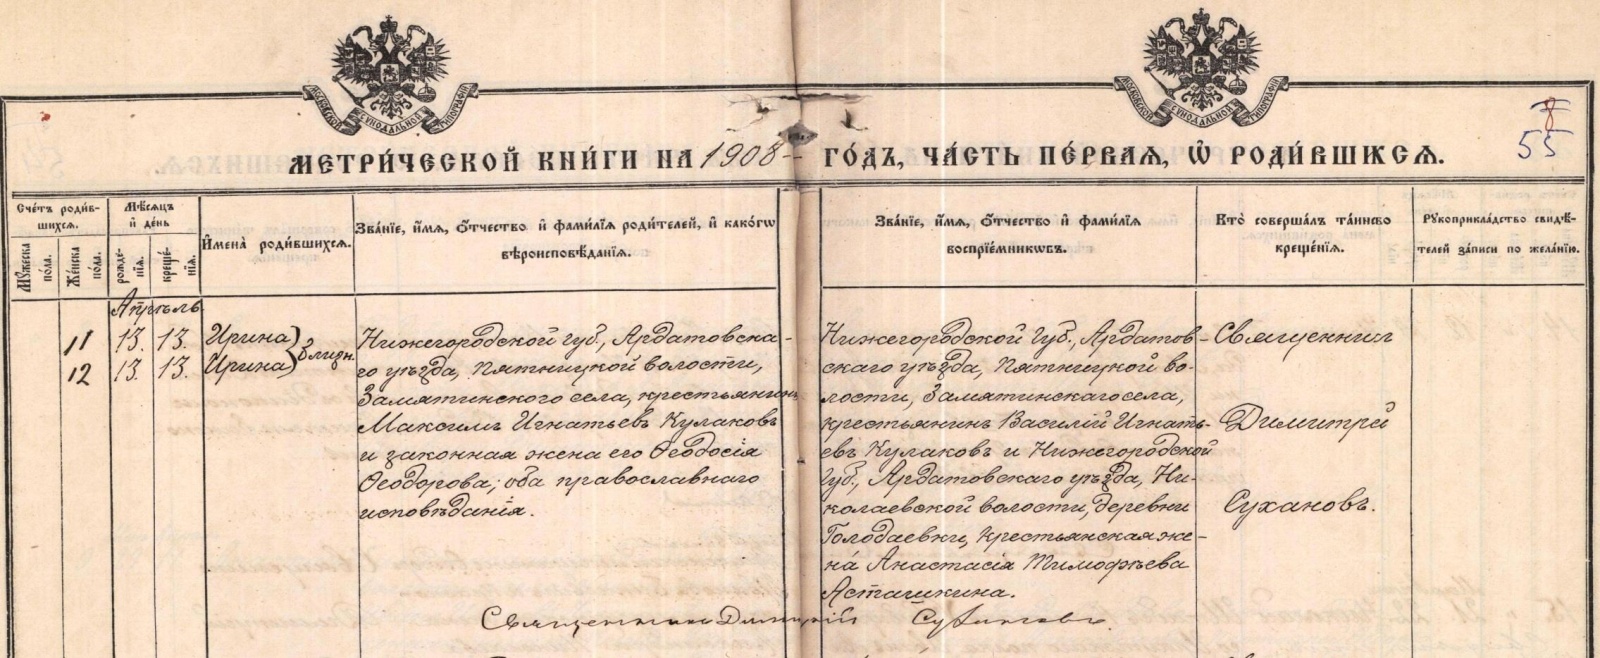 МОСКОВСКОЙ СѴНОДАЛЬНОЙ ТИПОГРАФІИ
МОСКОВСКОЙ СѴНОДАЛЬНОЙ ТИПОГРАФІИ
55
МЕТРИ́ЧЕСКОЙ КНИ́ГИ НА 1908 ГО́ДЪ, ЧА́СТЬ ПЕ́РВАЯ, Ѡ҆ РОДИ́ВШИХСЯ.
Сче́тъ роди́в-
шихся.
Мѣ́сяцъ
и҆ де́нь
Му́жеска
по́ла.
Же́нска
по́ла.
рожде́-
нїя.
креще́-
нїя.
И҆мена̀ роди́вшихся.
Зва́нїе, и҆́мя, ѻ҆́тчество и҆ фами́лїя роди́телей, и҆ како́гѡ
вѣроисповѣ́данїя.
Зва́нїе, и҆́мя, ѻ҆́тчество и҆ фами́лїя
воспрїе́мникѡвъ.
Кто̀ соверша́лъ та́инство
креще́нїя.
Рꙋкоприкла́дство свидѣ́-
телей за́писи по жела́нїю.
Апрѣль
11 13. 13. Ирина
12 13. 13. Ирина близн.
Нижегородской губ., Ардатовска-
го уѣзда, Пятницкой волости,
Замятинского села, крестьянинъ
Максимъ Игнатьевъ Кулаковъ
и законная жена его Ѳеодосія
Ѳеодорова; оба православнаго
исповѣданія.
Нижегородской губ., Ардатов-
скаго уѣзда, Пятницкой во-
лости, Замятинскаго села,
крестьянинъ Василій Игнать-
евъ Кулаковъ и Нижегородской
губ., Ардатовскаго уѣзда, Ни-
колаевской волости, деревни
Голодаевки, крестьянская же-
на Анастасія Тимофѣева
Асташкина.
Священникъ
Димитрій
Сухановъ.
Священникъ Димитрій Сухановъ